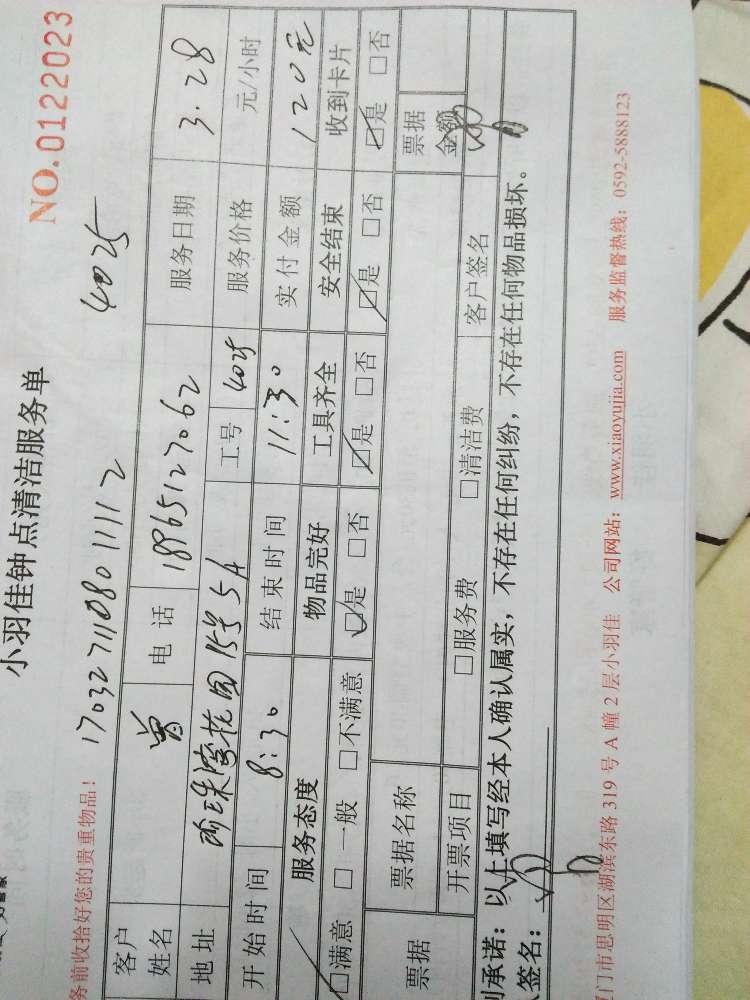 小羽佳钟点清洁服务单
NO.0122023
务前收拾好您的贵重物品! 1703271108011112 4025
客户姓名 曾 电话 18965127062 服务日期 3.28
地址 珍珠湾花园15号5A 工号 4025 服务价格 元/小时
开始时间 8:30 结束时间 11:30 实付金额 120元
服务态度 物品完好 工具齐全 安全结束 收到卡片
□满意 □一般 □不满意 □是 □否 □是 □否 □是 □否 □是 □否
票据 票据名称 票据金额
开票项目 □服务费 □清洁费 客户签名
承诺:以上填写经本人确认属实,不存在任何纠纷,不存在任何物品损坏。
签名:
门市思明区湖滨东路319号A幢2层小羽佳 公司网站:www.xiaoyujia.com 服务监督热线:0592-5888123